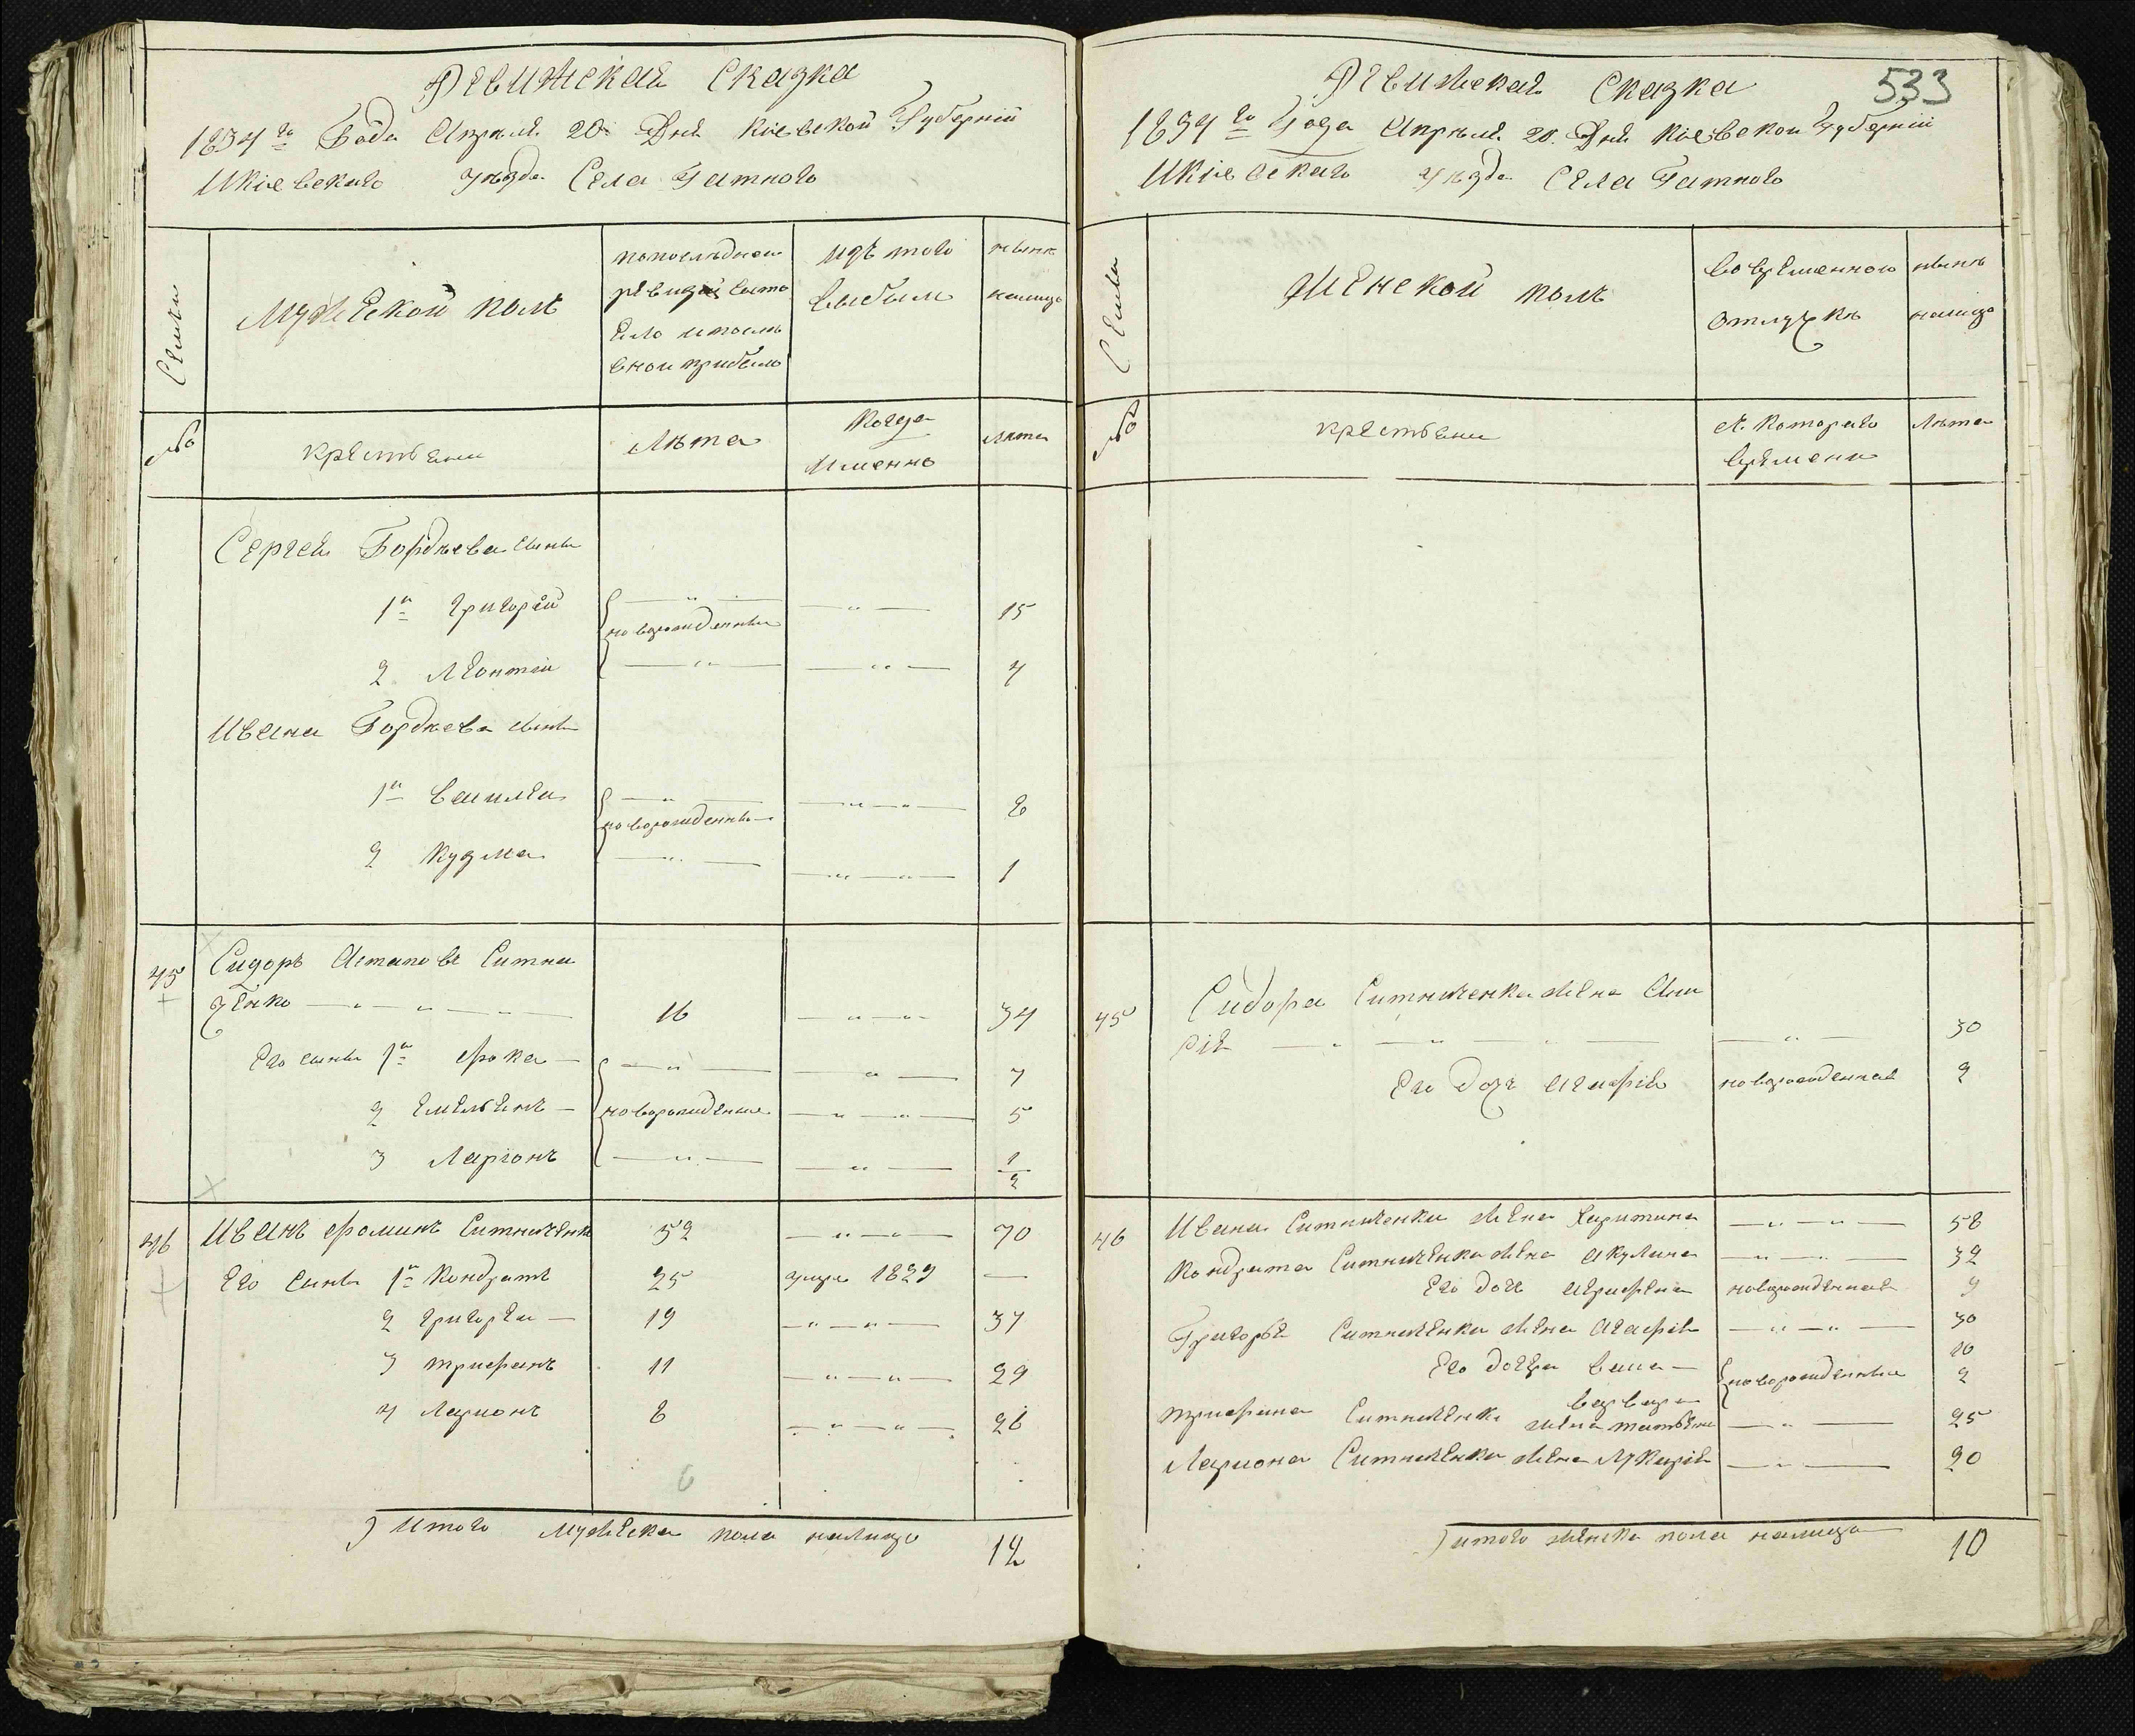 Ревижская Сказка
1834го Года Апреля 20 Дня Киевской Губернiи
Икiевскаго уѣзда Села Гатного
Семьи
Мужеской полъ
попоследнеи
ревизiи состо
яло ипосле
оной прибыло
изъ того
выбыли
нынѣ
налицо
№
крестьяни
Лѣта
Когда
Именно
Лѣта
Сергея Гордѣева сыны
1й Григорiй — „ — — „ — 15
новорожденные
2 Леонтiй — „ — — „ — 4
Ивана Гордѣева сыны
1й Василiи — „ — — „ — „ — 8
новорожденны
2 Кузма — „ — — „ — „ — 1
45 Сидоръ Астаповъ Ситни
ченко — „ — „ — „ — 16 — „ — „ — 34
Его сыны 1й Фока — — „ — — „ — 7
2 Емельянъ — новорожденные — „ — „ — 5
3 Ларiонъ — „ — — „ — 1/2
46 Иванъ Фоминъ Ситниченко 52 — „ — „ — 70
Его Сыны 1й Кондратъ 25 умре 1829 —
2 Григорiи — 19 — „ — „ — 37
3 Трифанъ 11 — „ — „ — 29
4 Ларионъ 8 — „ — „ — 26
6
Итого Мужеска пола налицо 12
533
Ревижская Сказка
1834го Года Апреля 20 Дня Киевской Губернiи
Икiевскаго уѣзда Села Гатного
Семьи
Женской полъ
Вовременной
отлучкѣ
нынѣ
налицо
№
крестьяни
Съ Котораго
времени
Лѣта
45 Сидора Ситниченка жена Ма
рiя — „ — „ — „ — — „ — 30
Его дочь Агафiя новорожденная 2
46 Ивана Ситниченка жена Харитина — „ — „ — 58
Кондрата Ситниченка жена Акулина — „ — „ — 32
Его дочь Априфена новорожденная 9
Григорья Ситниченка жена Агафiя — „ — „ — 30
Его дочери Васа — новорожденные 10
Варвара 2
Трифана Ситниченка жена Татьяна — „ — 25
Лариона Ситниченка жена Лукерiя — „ — 20
итого женска пола налицо 10